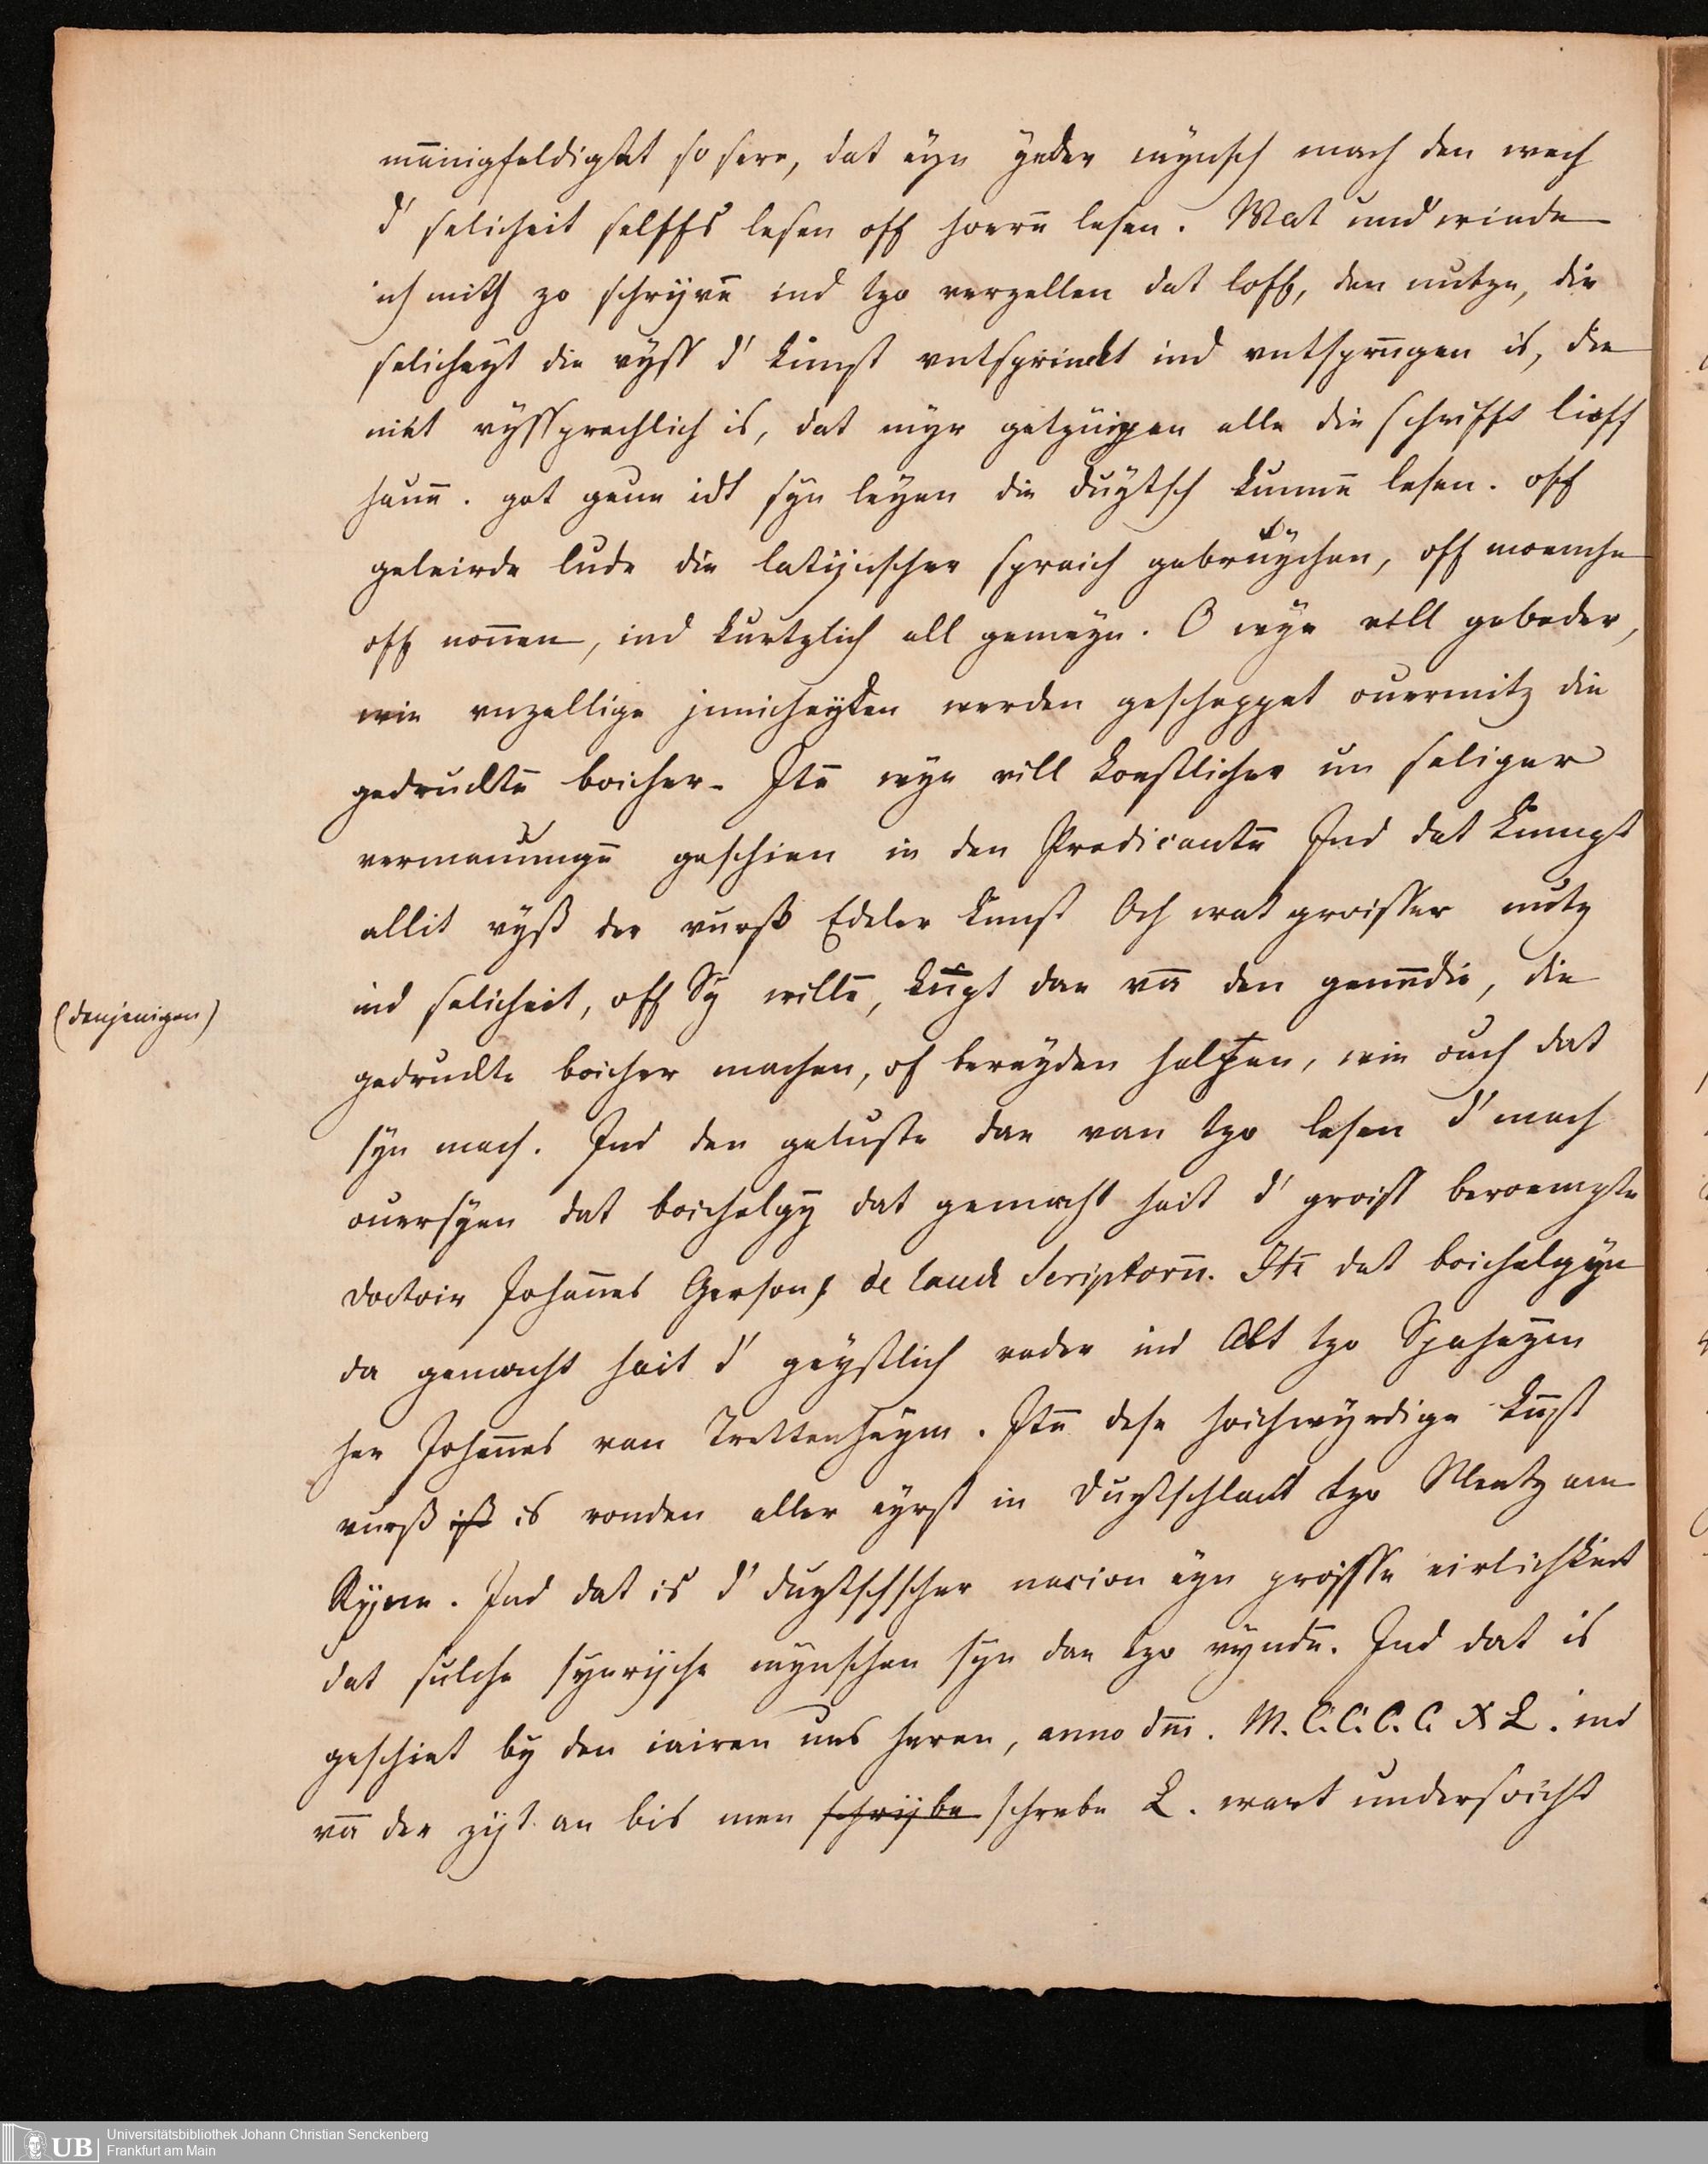 mānigfeldighet so sere, dat eyn yeder mynsch mach den wech
d' selicheit selffs lesen off hoerē lesen. Wat und'winde
ich mich zo schryvē ind tzo verzellen dat loff, den nutze, die
selicheyt die vyss d' kunst entsprinckt ind entsprūgen is, die
niet vyssprechlich is, dat myr getzuigen alle die schrifft lieff
hauē. got geue idt syn leyen die duytsch kunnē lesen. off
geleirde lude die latijnscher spraich gebruychen, off moenche
off nonnen, ind kurtzlich all gemeyn. O wye vill gebeder,
wie vnzellige jnnicheyden werden gescheppet ouermitz die
gedruckte boicher. Itē wye vill koestlicher un seliger
vermanungē geschien in den Predicantē Ind dat kumpt
allit vyß der vurß Edeler kunst Och wat groisser nutz
ind selicheit, off Sy willē, kūpt dae vā den genendie, die
(denjenigen)
gedruckte boicher machen, of bereyden helpen, wie ouch dat
syn mach. Ind den geluste dae van tzo lesen d' mach
ouersyen dat boichelgyn dat gemacht hait d' groiss beroempte
doctoir Johannes Gerson, de laude Scriptorū. Itē dat boichelgyn
da gemacht hait d' geystlich vader ind Abt tzo Spaheym
her Johannes van Trettenheym. Itē dese hoichwyrdige kūst
vurß ist is vonden aller eyrst in duytschlant tzo Mentz am
Rijne. Ind dat is d' duytschscher nacion eyn groisse eirlichkeit
dat sulche synrijche mynschen syn dae tzo vyndē. Ind dat is
geschiet by den iairen uns heren, anno dni. M.C.C.C.C.XL. ind
vā der zijt an bis men schrijbe schrebe L. wart undersoicht
Universitätsbibliothek Johann Christian Senckenberg
UB
Frankfurt am Main